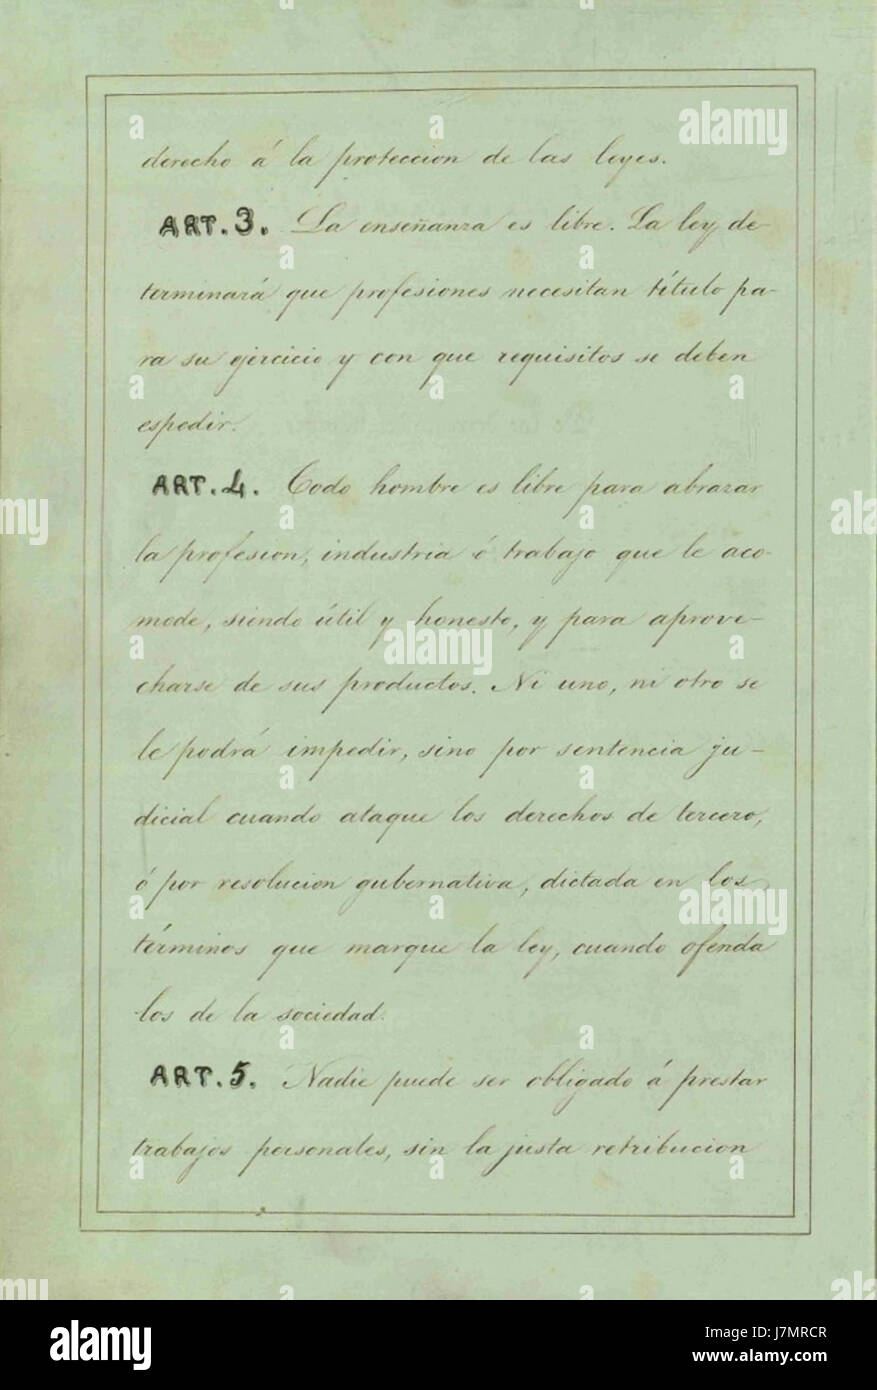 derecho á la proteccion de las leyes.
ART. 3. La enseñanza es libre. La ley de-
terminará que profesiones necesitan título pa-
ra su ejercicio y con que requisitos se deben
espedir.
ART. 4. Todo hombre es libre para abrazar
la profesion, industria ó trabajo que le aco-
mode, siendo útil y honesto, y para aprove-
charse de sus productos. Ni uno, ni otro se
le podrá impedir, sino por sentencia ju-
dicial cuando ataque los derechos de tercero,
ó por resolucion gubernativa, dictada en los
términos que marque la ley, cuando ofenda
los de la sociedad.
ART. 5. Nadie puede ser obligado á prestar
trabajos personales, sin la justa retribucion
alamy
Image ID: J7MRCR
www.alamy.com